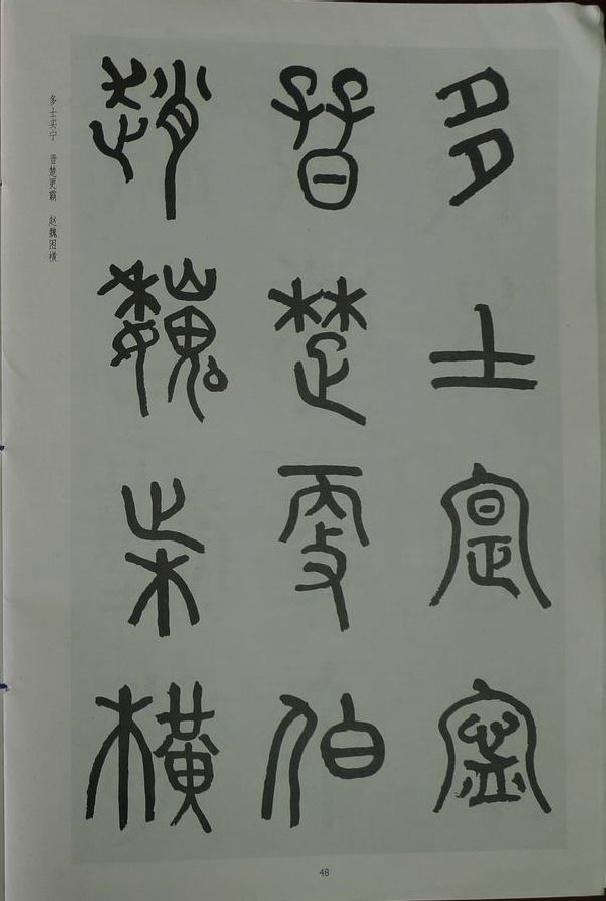 多士寔寧
晉楚更伯
趙魏困橫
多士实宁 晋楚更霸 赵魏困横
48